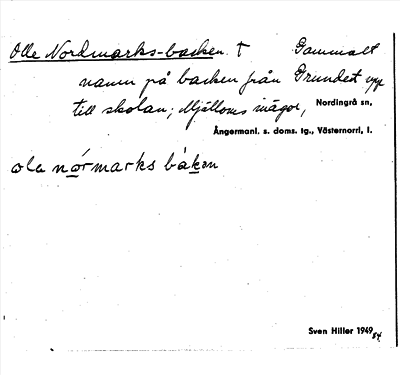 Olle Nordmarks-backen. † Gammalt
namn på backen från Grundet upp
till skolan; Mjälloms ägor, Nordingrå sn,
Ångermanl. s. doms. tg., Västernorrl. l.
ola nórmarks bàken
Sven Hiller 1949